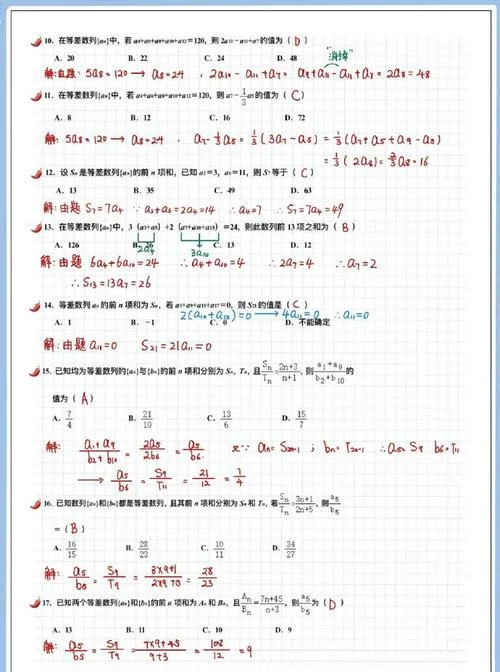 10. 在等差数列{aₙ}中，若a₄+a₆+a₈+a₁₀+a₁₂=120，则2a₁₀－a₁₁+a₇的值为（ D ）
"消掉"
A. 20 B. 22 C. 24 D. 48
解:由题: 5a₈=120 → a₈=24 , 2a₁₀-a₁₁+a₇= a₉+a₁₁-a₁₁+a₇=2a₈=48
11. 在等差数列{aₙ}中，若a₄+a₆+a₈+a₁₀+a₁₂=120，则a₇－1/3a₅的值为（ C ）
A. 8 B. 12 C. 16 D. 72
解: 5a₈=120 → a₈=24 , a₇-1/3a₅=1/3(3a₇-a₅)=1/3(a₇+a₅+a₉-a₅)
=1/3(2a₈)=2/3a₈=16
12. 设Sₙ是等差数列{aₙ}的前n项和，已知a₂=3，a₆=11，则S₇等于（ C ）
A. 13 B. 35 C. 49 D. 63
解:由题 S₇=7a₄ ∵a₂+a₆=2a₄=14 ∴a₄=7 ∴S₇=7a₄=49
13. 在等差数列{aₙ}中，3（a₃+a₅）+2（a₇+a₁₀+a₁₃）=24，则此数列前13项之和为（ B ）
A. 126 B. 26 C. 13 D. 12
2a₄ 3a₁₀
解:由题 6a₄+6a₁₀=24 ∴a₄+a₁₀=4 ∴2a₇=4 ∴a₇=2
∴S₁₃=13a₇=26
14. 等差数列aₙ的前n项和为Sₙ，若a₅+a₉+a₁₅+a₁₇=0，则S₂₁的值是（ C ）
2(a₁₀+a₁₂)=0 → 4a₁₁=0 ∴a₁₁=0
A. 1 B. －1 C. 0 D. 不能确定
解:由题 a₁₁=0 S₂₁=21a₁₁=0
15. 已知均为等差数列的{aₙ}与{bₙ}的前n项和分别为Sₙ，Tₙ，且Sₙ/Tₙ=2n+3/n+1，则a₁+a₉/b₂+b₁₀的
值为（ A ）
A. 7/4 B. 21/10 C. 13/6 D. 15/7
解: a₁+a₉/b₂+b₁₀=2a₅/2b₆=a₅/b₆. 又∵aₙ=S₂ₙ₋₁ ; bₙ=T₂ₙ₋₁ ∴a₅=S₉ b₆=T₁₁
→ a₅/b₆=S₉/T₁₁=21/12=7/4
16. 已知数列{aₙ}和{bₙ}都是等差数列，且其前n项和分别为Sₙ和Tₙ，若Sₙ/Tₙ=3n+1/2n+5，则a₅/b₅
=（ B ）
A. 16/15 B. 28/23 C. 10/11 D. 34/27
解: a₅/b₅=S₉/T₉=3×9+1/2×9+5=28/23
17. 已知两个等差数列{aₙ}和{bₙ}的前n项和为Aₙ和Bₙ，且Aₙ/Bₙ=7n+45/n+3，则a₅/b₅为（ D ）
A. 13 B. 11 C. 10 D. 9
解: a₅/b₅=S₉/T₉=7×9+45/9+3=108/12=9